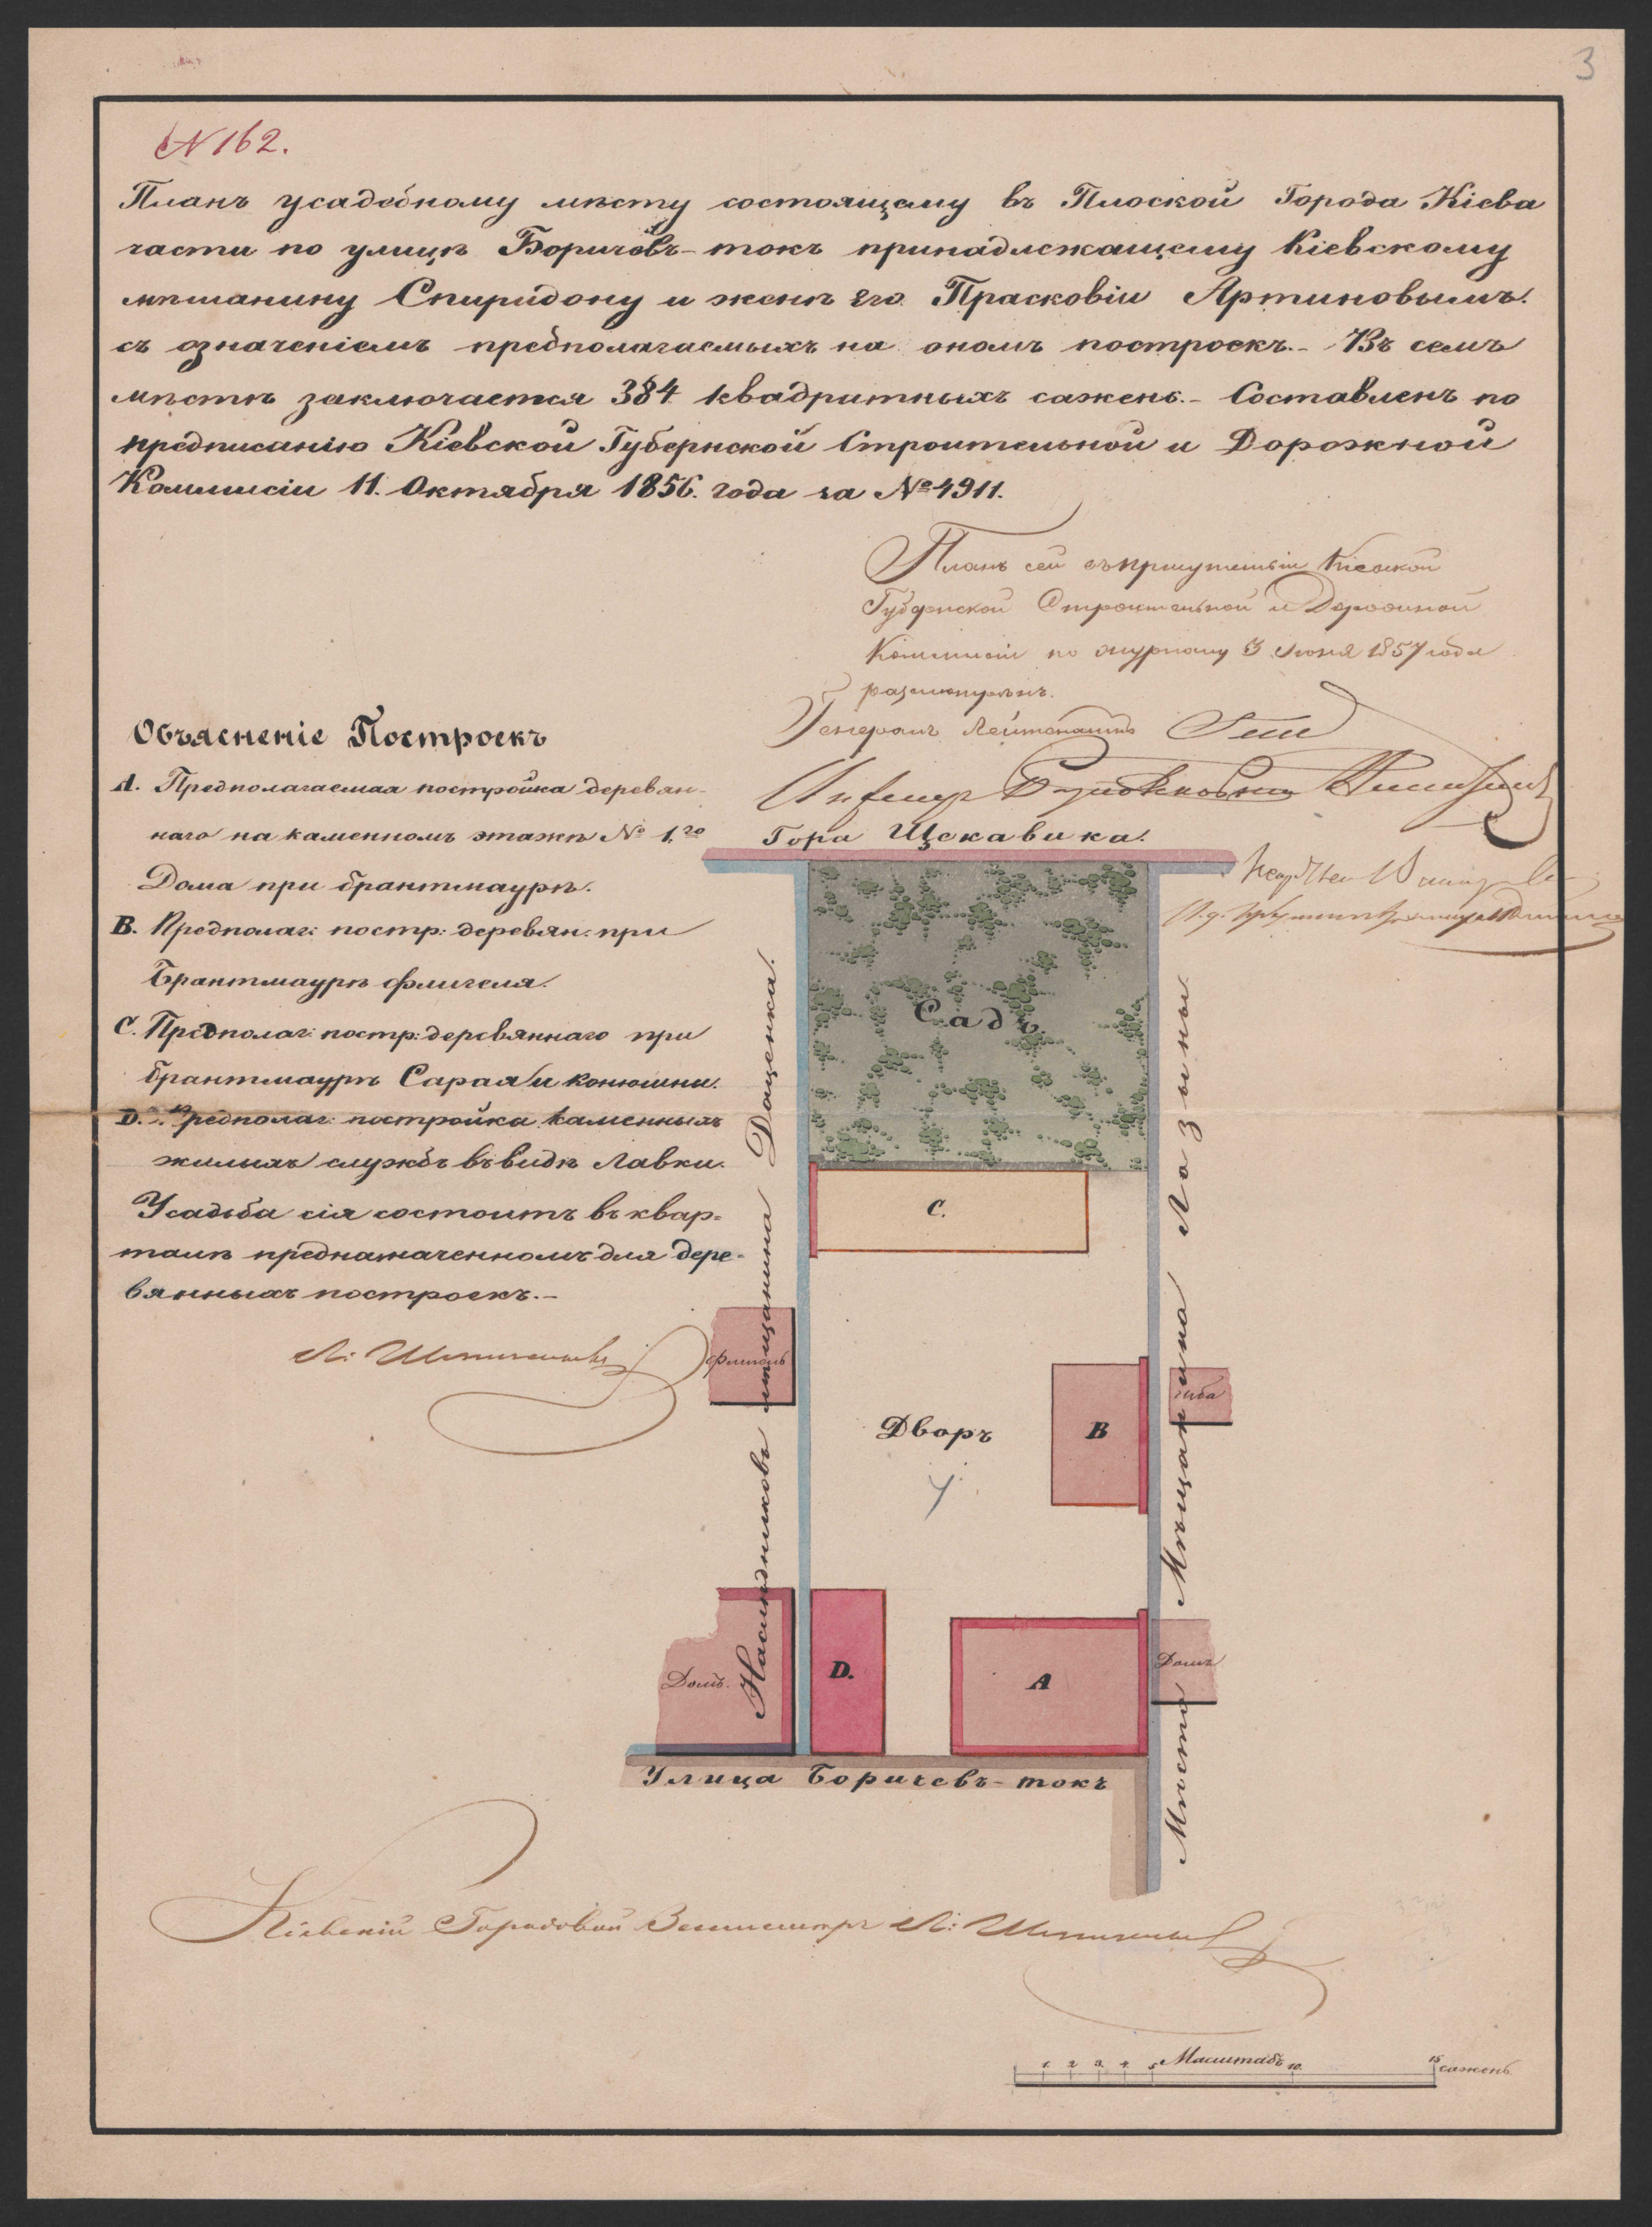 3
№ 162.
Планъ усадебному мѣсту состоящему въ Плоской Города Кіева
части по улицѣ Боричевъ-токъ принадлежащему Кіевскому
мѣщанину Спиридону и женѣ его Прасковіи Артиновымъ.
съ означеніемъ предполагаемыхъ на ономъ построекъ.- Въ семъ
мѣстѣ заключается 384 квадратныхъ сажень.- Составленъ по
предписанію Кіевской Губернской Строительной и Дорожной
Коммисіи 11. Октября 1856. года за № 4911.
Планъ сей въ присутствіи Кіевской
Губернской Строительной и Дорожной
Коммисіи по журналу 3 Іюня 1857 года
разсмотрѣнъ.
Генералъ Лейтенантъ
Объясненіе Построекъ
А. Предполагаемая постройка деревян-
наго на каменномъ этажѣ № 1.го
Дома при брантмаурѣ.
В. Предполаг: постр: деревян: при
Брантмаурѣ флигеля.
С. Предполаг: постр: деревяннаго при
брантмаурѣ Сарая и конюшни.
D. Предполаг: постройка каменныхъ
жилыхъ службъ въ видѣ Лавки.
Усадьба сія состоитъ въ квар-
талѣ предназначенномъ для дере-
вянныхъ построекъ.-
Гора Щекавика.
Садъ.
С.
Дворъ
В
D.
А
флигель
Домъ.
изба
Домъ
Наслѣдниковъ мѣщанина Даценка.
Мѣсто Мѣщанина Лазыны
Улица Боричевъ-токъ
Кіевскій Городовой Землемѣръ
Масштабъ
1. 2 3. 4. 5 10. 15 сажень